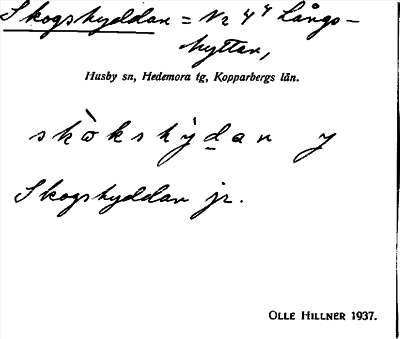 Skogshyddan = N⁰ 4⁴ Långs-
hyttan,
Husby sn, Hedemora tg, Kopparbergs län.
skògshỳdan y
Skogshyddan jr.
OLLE HILLNER 1937.